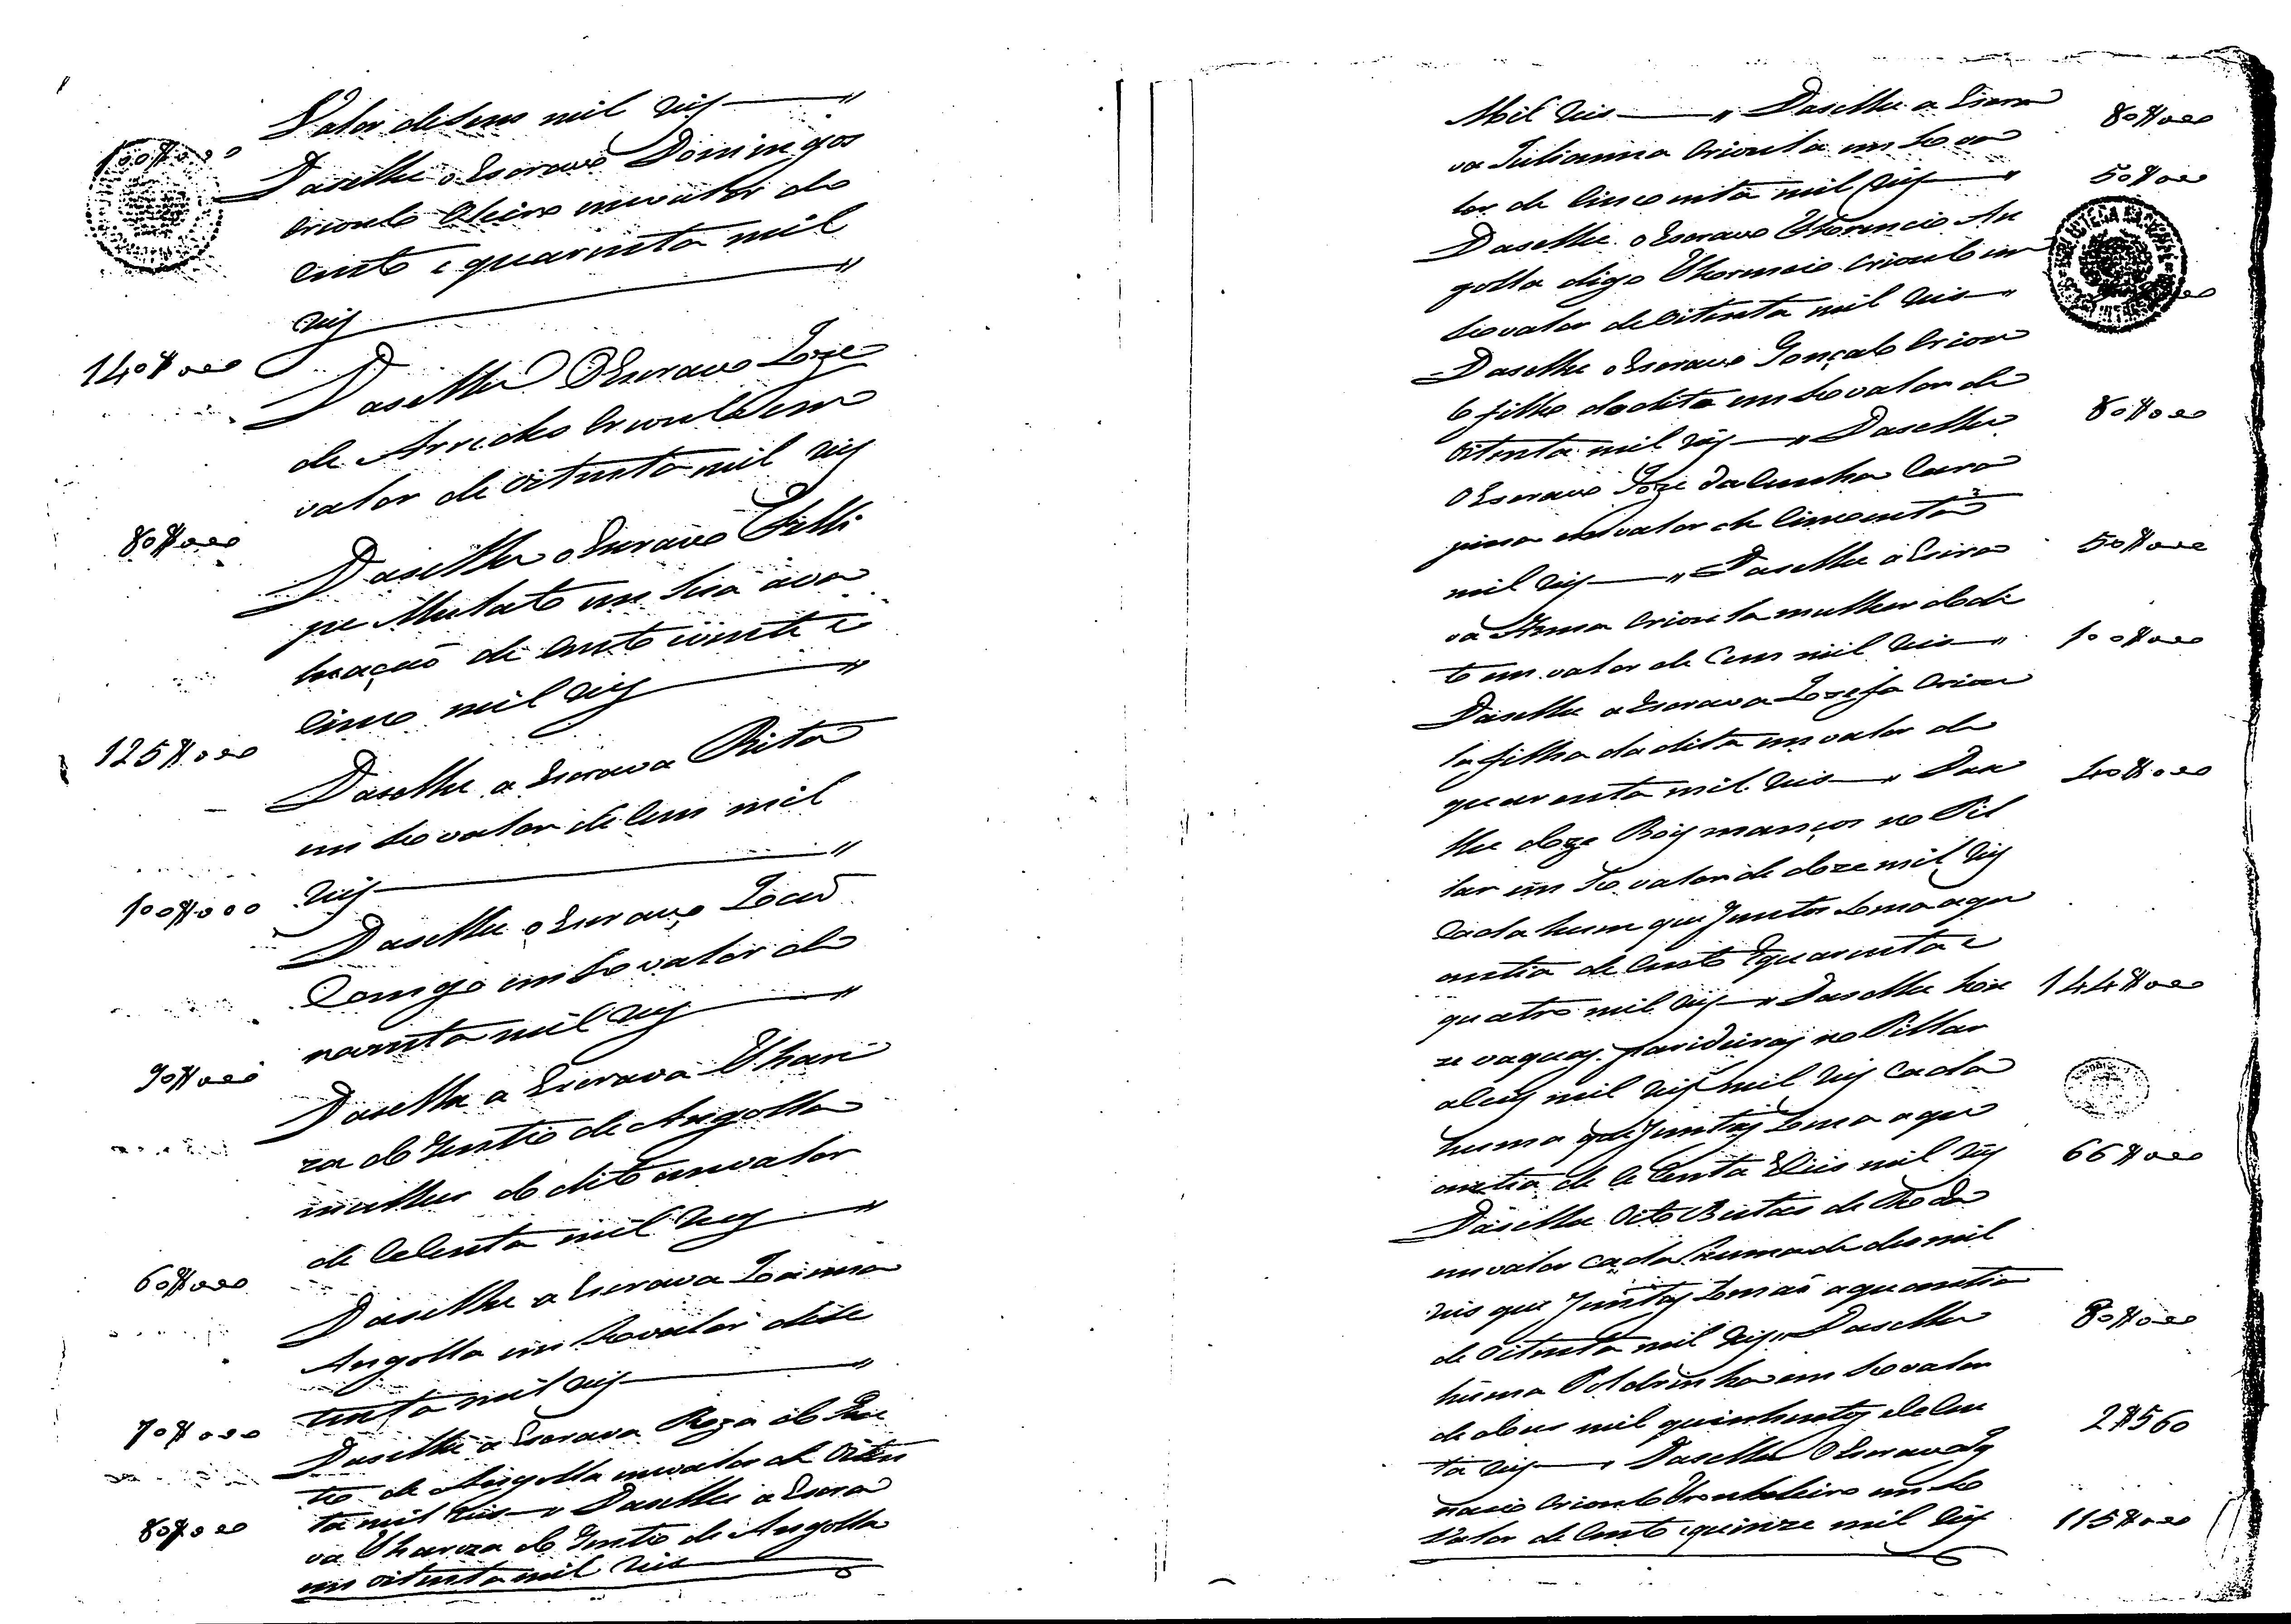 Valor desem mil reis
100$000
Daselhe o Escravo Domingos
Crioulo Oleiro novalor de
cento e quarenta mil
reis
140$000
Daselhe O Escravo Joze
de Arruda Crioulo em
valor de Oitenta mil reis
80$000
Daselhe o Escravo Felli
pe Mulato em sua ava
luação de cento evinte e
sinco mil reis
125$000
Daselhe a Escrava Rita
em seo valor de Cem mil
reis
100$000
Daselhe o Escravo João
Congo em seo valor de
noventa mil reis
90$000
Daselhe a Escrava Thare
za do Gentio de Angolla
mulher do dito em valor
de Cecenta mil reis
60$000
Daselhe a Escrava Joanna
Angolla em seo valor dese
tenta mil reis
70$000
Daselhe a Escrava Roza do Gen
tio de Angolla em valor de Oiten
ta mil reis Daselhe a Escra
80$000
va Thareza do Gentio de Angolla
em oitenta mil reis
Mil reis Daselhe a Escra
80$000
va Julianna Crioula em seo va
lor de Cincoenta mil reis
50$000
Daselhe o Escravo Florencio An
golla digo Florencio Crioulo em
seo valor de Oitenta mil reis
Daselhe o Escravo Gonçalo Criou
lo filho da dita em seo valor de
Oitenta mil reis Daselhe
80$000
O Escravo Joze da Cunha Cara
pina em valor de Cincoenta
mil reis Daselhe a Escra
50$000
va Anna Crioula mulher do di
to em valor de Cem mil reis
100$000
Daselhe a Escrava Jozefa Criou
la filha da dita em valor de
quarenta mil reis Dase
40$000
lhe doze Bois mansos no Pil
lar em seo valor de doze mil reis
Cada hum que Juntos soma aqu
antia de Cento Equarenta e
quatro mil reis Daselhe hon
144$000
ze vaquas paridueiras no Pillar
aseis mil reis mil reis Cada
huma que Juntas soma a qu
antia de Cecenta Eseis mil reis
66$000
Daselhe Oito Bestas de Roda
em valor Cada huma de des mil
reis que Juntas somão aquantia
de Oitenta mil reis Daselhe
80$000
huma Poldrinha em seo valor
de dous mil quinhentos e Cecen
2$560
ta reis Daselhe O Escravo Ig
nacio Crioulo Trombeteiro em seo
Valor de Cento e quinze mil reis
115$000